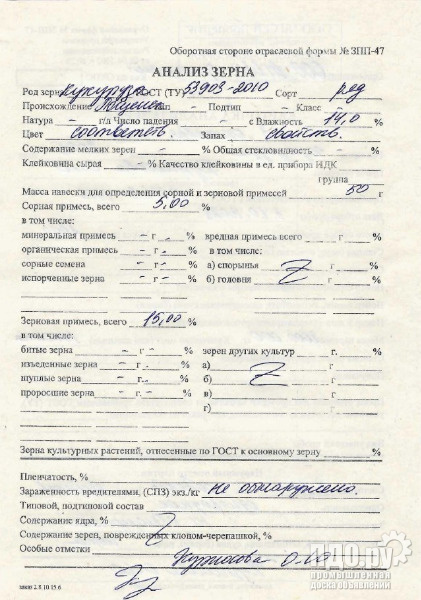 Оборотная сторона отраслевой формы № ЗПП-47
АНАЛИЗ ЗЕРНА
Род зерна кукуруза ГОСТ (ТУ) 53903-2010 Сорт ряд
Происхождение Тип – Подтип – Класс –
Натура – г/л Число падения – с Влажность 14,0 %
Цвет соответств. Запах свойств.
Содержание мелких зерен – % Общая стекловидность – %
Клейковина сырая – % Качество клейковины в ед. прибора ИДК
группа
Масса навески для определения сорной и зерновой примесей 50 г
Сорная примесь, всего 5,00 %
в том числе:
минеральная примесь – г – % вредная примесь всего г %
органическая примесь – г – % в том числе:
сорные семена – г – % а) спорынья г %
испорченные зерна – г – % б) головня г %
г % г %
г % г %
Зерновая примесь, всего 15,00 %
в том числе:
битые зерна – г – % зерен других культур г. %
изъеденные зерна – г – % а) г %
щуплые зерна – г – % б) г %
проросшие зерна – г – % в) г %
г) г %
Зерна культурных растений, отнесенные по ГОСТ к основному зерну %
Пленчатость, %
Зараженность вредителями, (СПЗ) экз./кг не обнаружено.
Типовой, подтиповой состав
Содержание ядра, %
Содержание зерен, поврежденных клопом-черепашкой, %
Особые отметки
ИДО.ру
промышленная
доска объявлений